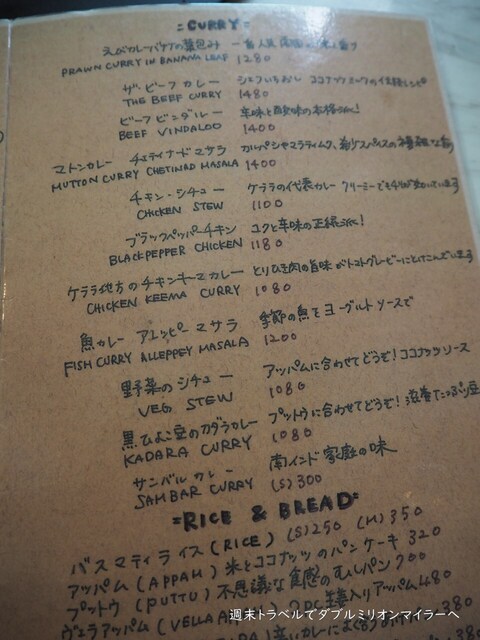 =CURRY=
えびカレーバナナの葉包み 一番人気
PRAWN CURRY IN BANANA LEAF 1280
ザ・ビーフ カレー シェフいちおし ココナッツミルクの伝統レシピ
THE BEEF CURRY 1480
ビーフ ビンダルー 辛味と酸味の本格派!
BEEF VINDALOO 1400
マトンカレー チェティナード マサラ カルパシやマラティムク、希少スパイスの複雑な香り
MUTTON CURRY CHETINAD MASALA 1400
チキン・シチュー ケララの代表カレー クリーミーでも辛味が効いています
CHICKEN STEW 1100
ブラックペッパーチキン コクと辛味の正統派!
BLACKPEPPER CHICKEN 1180
ケララ地方のチキンキーマカレー とりひき肉の旨味がトマトグレービーにとけこんでいます
CHICKEN KEEMA CURRY 1080
魚カレー アレッピー マサラ 季節の魚をヨーグルトソースで
FISH CURRY ALLEPPEY MASALA 1200
野菜のシチュー アッパムに合わせてどうぞ!ココナッツソース
VEG STEW 1080
黒ひよこ豆のカダラカレー プットゥに合わせてどうぞ!滋養たっぷり豆
KADARA CURRY 1080
サンバル カレー 南インド家庭の味
SAMBAR CURRY (S)300
=RICE & BREAD=
バスマティライス(RICE) (S)250 (M)350
アッパム(APPAM) 米とココナッツのパンケーキ 320
プットゥ(PUTTU) 不思議な食感のむしパン 700
ヴェラアッパム 入りアッパム 480
380
週末トラベルでダブルミリオンマイラーへ